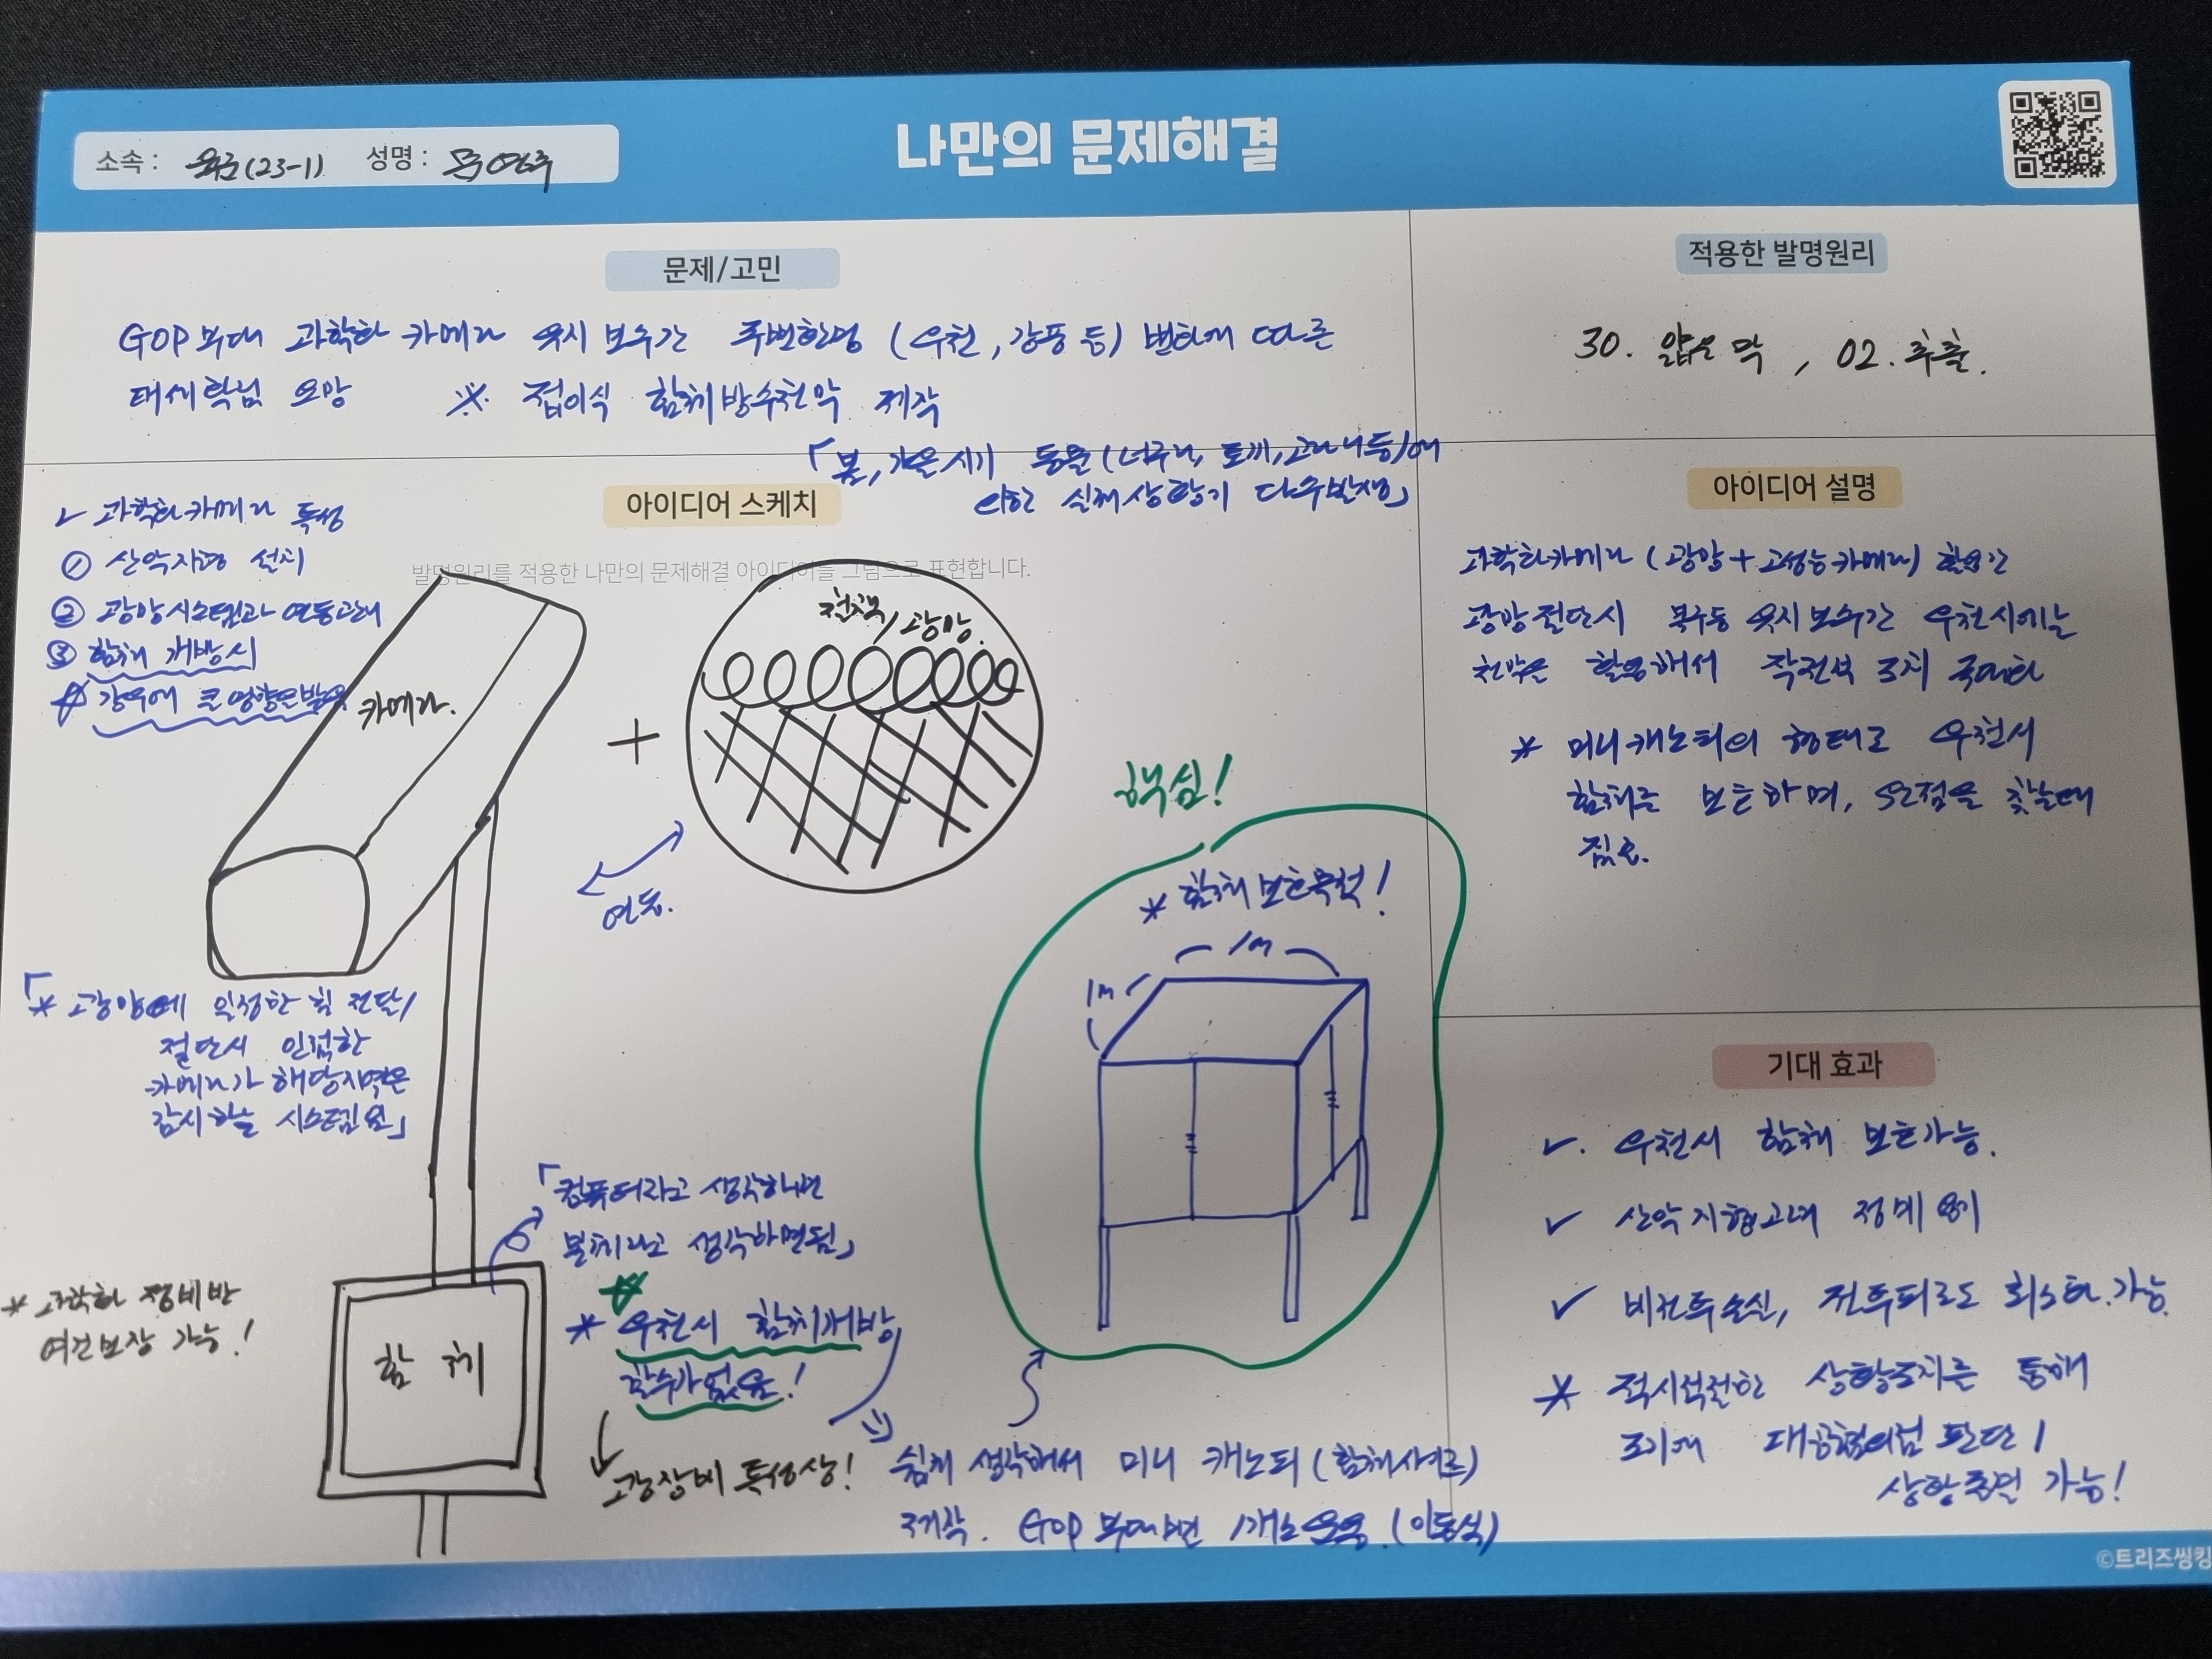 나만의 문제해결
소속 : (23-1) 성명 :
문제/고민
GOP부대 과학화 카메라 유지 보수간 주변환경 (우천, 강풍 등) 변화에 따른
대책 요망 ※ 접이식 함체방수천막 제작
「봄, 가을시기 동물 (너구리, 토끼, 고라니등)에
의한 실제상황기 다수발생」
적용한 발명원리
30. 얇은 막 , 02. 추출.
아이디어 스케치
발명원리를 적용한 나만의 문제해결 아이디어를 그림으로 표현합니다.
✓ 과학화카메라 특성
① 산악지형 설치
② 광망시스템과 연동관계
③ 함체 개방시
☆ 강우에 큰 영향을받음
카메라.
+
철책/광망.
연동.
「* 광망에 일정한 힘 전달/
절단시 인접한
카메라가 해당지역을
감시하는 시스템임」
* 과학화 정비반
여건보장 가능!
함체
「컴퓨터라고 생각하면
본체라고 생각하면됨」
☆
* 우천시 함체개방이
할수가없음!
↓ 광장비 특성상!
핵심!
* 함체 보호목적!
1m
1m
쉽게 생각해서 미니 캐노피 (함체사이즈)
제작. GOP 부대별 1개소 운용. (이동식)
아이디어 설명
과학화카메라 (광망+고성능카메라) 활용간
광망절단시 복구등 유지보수간 우천시에는
천막을 활용해서 작전적 조치 극대화
* 미니캐노피의 형태로 우천시
함체를 보호하며, 요점을 찾는데
집요.
기대 효과
✓. 우천시 함체 보호가능.
✓ 산악지형고려 정비 용이
✓ 비전투손실, 전투피로도 최소화 가능.
* 적시적절한 상황조치를 통해
조기에 대공혐의점 판단/
상황종결 가능!
©트리즈씽킹